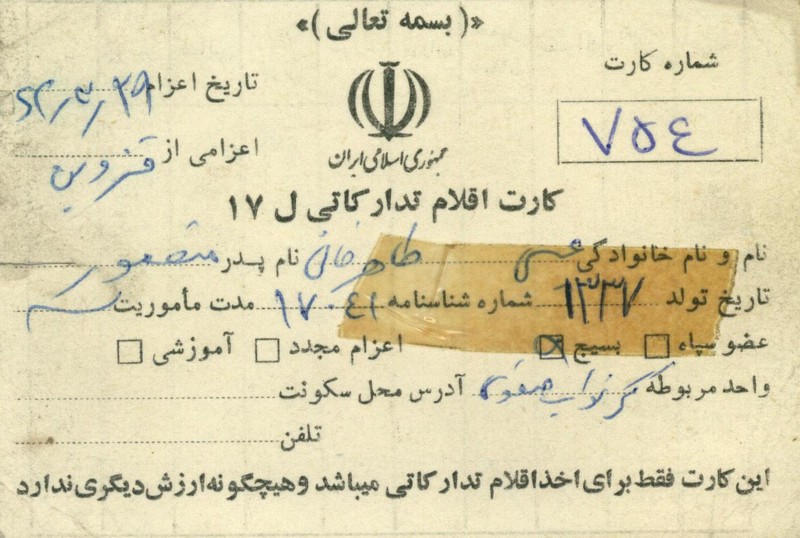 «(بسمه تعالی)»
شماره کارت
۷۵٤
جمهوری اسلامی ایران
تاریخ اعزام ۶۲/۳/۲۹
اعزامی از قزوین
کارت اقلام تدارکاتی ل ۱۷
نام و نام خانوادگی طاهرخانی نام پدر منصور
تاریخ تولد ۱۳۳۷ شماره شناسنامه ۱۷۰٤۱ مدت مأموریت
عضو سپاه بسیج اعزام مجدد آموزشی
واحد مربوطه آدرس محل سکونت
تلفن
این کارت فقط برای اخذ اقلام تدارکاتی میباشد وهیچگونه ارزش دیگری ندارد